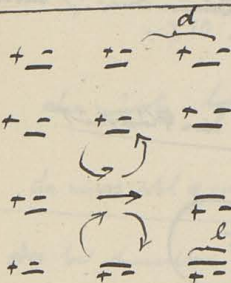 d
+ - + - + -
+ - + - + -
+ - + -
l
+ - + -